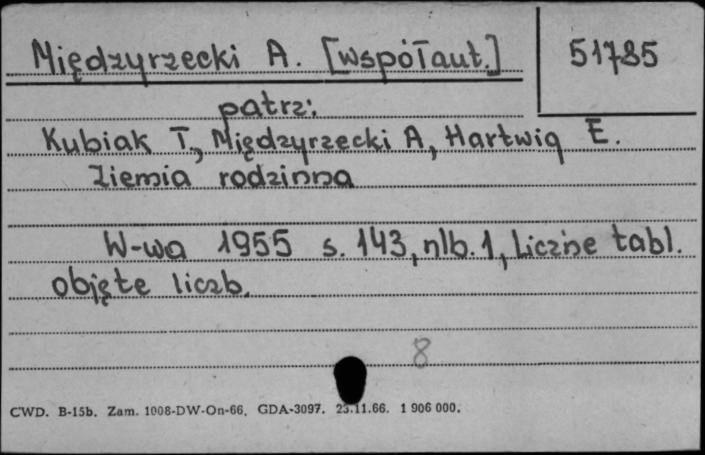 Międzyrzecki A. [współaut.]
51785
patrz:
Kubiak T, Międzyrzecki A, Hartwig E.
Ziemia rodzinna
W-wa 1955 s. 143, nlb. 1, Liczne tabl.
objęte liczb.
8
CWD. B-15b. Zam. 1008-DW-On-66. GDA-3097. 23.11.66. 1 906 000.